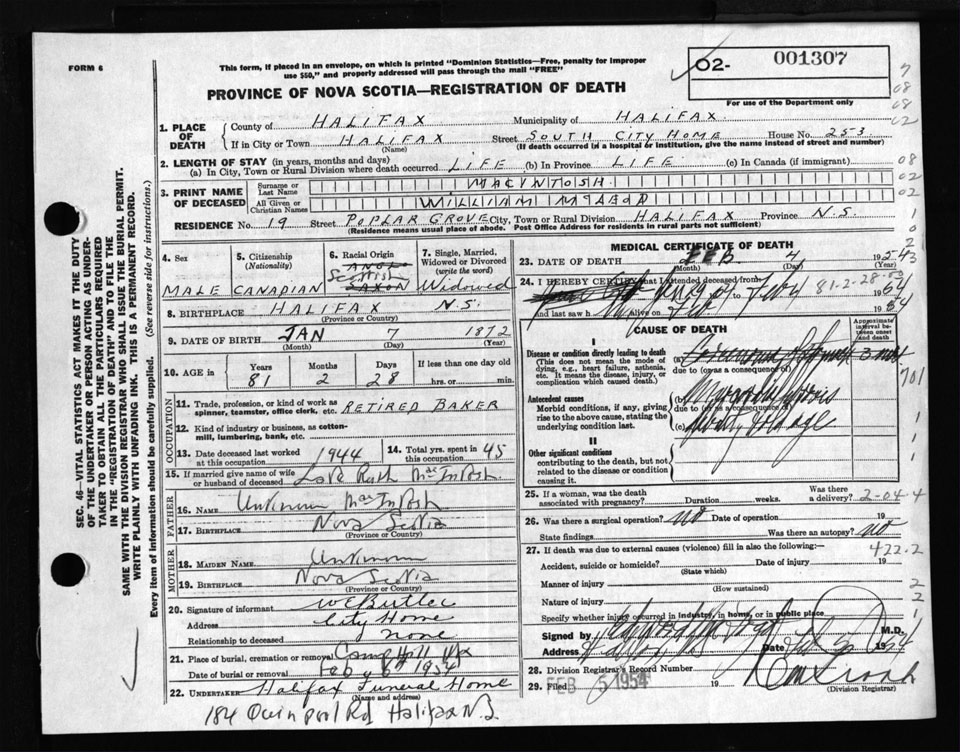 FORM 6
This form, if placed in an envelope, on which is printed "Dominion Statistics—Free, penalty for improper
use $50," and properly addressed will pass through the mail "FREE"
O2- 001307
For use of the Department only
PROVINCE OF NOVA SCOTIA—REGISTRATION OF DEATH
7
08
08
02
1. PLACE OF DEATH
County of HALIFAX Municipality of HALIFAX
If in City or Town HALIFAX Street SOUTH CITY HOME House No. 253
(Name) (If death occurred in a hospital or institution, give the name instead of street and number)
2. LENGTH OF STAY (in years, months and days)
(a) In City, Town or Rural Division where death occurred LIFE (b) In Province LIFE (c) In Canada (if immigrant) 08
3. PRINT NAME OF DECEASED
Surname or Last Name MACINTOSH 02
All Given or Christian Names WILLIAM 02
RESIDENCE No. 19 Street POPLAR GROVE City, Town or Rural Division HALIFAX Province N.S.
(Residence means usual place of abode. Post Office Address for residents in rural parts not sufficient)
SEC. 46—VITAL STATISTICS ACT MAKES IT THE DUTY
OF THE UNDERTAKER OR PERSON ACTING AS UNDER-
TAKER TO OBTAIN ALL THE PARTICULARS REQUIRED
IN THE "REGISTRATION OF DEATH" AND TO FILE THE
SAME WITH THE DIVISION REGISTRAR WHO SHALL ISSUE THE BURIAL PERMIT.
WRITE PLAINLY WITH UNFADING INK. THIS IS A PERMANENT RECORD.
Every item of information should be carefully supplied. (See reverse side for instructions.)
4. Sex
MALE
5. Citizenship
(Nationality)
CANADIAN
6. Racial Origin
ANGLO
Scottish
SAXON
7. Single, Married,
Widowed or Divorced
(write the word)
Widowed
8. BIRTHPLACE HALIFAX N.S.
(Province or Country)
9. DATE OF BIRTH JAN 7 1872
(Month) (Day) (Year)
10. AGE
Years Months Days If less than one day old
81 2 28 hrs. or min.
OCCUPATION
11. Trade, profession, or kind of work as
spinner, teamster, office clerk, etc. RETIRED BAKER
12. Kind of industry or business, as cotton-
mill, lumbering, bank, etc.
13. Date deceased last worked
at this occupation 1944
14. Total yrs. spent in
this occupation 45
15. If married give name of wife
or husband of deceased Late Ruth MacIntosh
FATHER
16. Name Unknown MacIntosh
17. BIRTHPLACE Nova Scotia
(Province or Country)
MOTHER
18. MAIDEN NAME Unknown
19. BIRTHPLACE Nova Scotia
(Province or Country)
20. Signature of informant W E Butler
Address City Home
Relationship to deceased none
21. Place of burial, cremation or removal Camp Hill Hfx
Date of burial or removal Feby 6th 1954
22. UNDERTAKER Halifax Funeral Home
(Name and Address)
184 Quinpool Rd Halifax N.S.
MEDICAL CERTIFICATE OF DEATH
23. DATE OF DEATH FEB 4 1954
(Month) (Day) (Year)
24. I HEREBY CERTIFY that I attended deceased from
81-2-28
and last saw h alive on 19
CAUSE OF DEATH
Approximate
interval between
onset and
death
I
Disease or condition directly leading to death
(This does not mean the mode of
dying, e.g., heart failure, asthenia,
etc. It means the disease, injury, or
complication which caused death.)
(a)
due to (or as a consequence of)
Antecedent causes
Morbid conditions, if any, giving
rise to the above cause, stating the
underlying condition last.
(b)
due to (or as a consequence of)
(c)
II
Other significant conditions
contributing to the death, but not
related to the disease or condition
causing it.
701
25. If a woman, was the death
associated with pregnancy? Duration weeks. Was there
a delivery? 2-04-4
26. Was there a surgical operation? no Date of operation 19
State findings Was there an autopsy? no
27. If death was due to external causes (violence) fill in also the following:— 422.2
Accident, suicide or homicide? Date of injury 19
(State which)
Manner of injury
(How sustained)
Nature of injury
Specify whether injury occurred in industry, in home, or in public place
Signed by M.D.
Address Date
28. Division Registrar's Record Number
29. Filed FEB 5 1954 19
(Division Registrar)